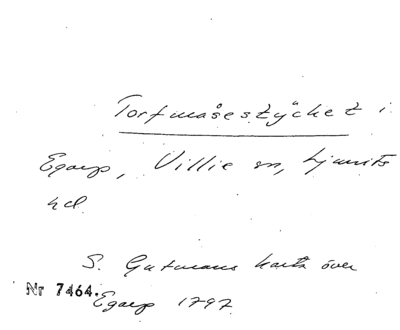 Torfmåsestÿcket i
Egarp, Villie sn, Ljunits
hd
S. Gutmans karta över
Nr 7464.
Egarp 1797